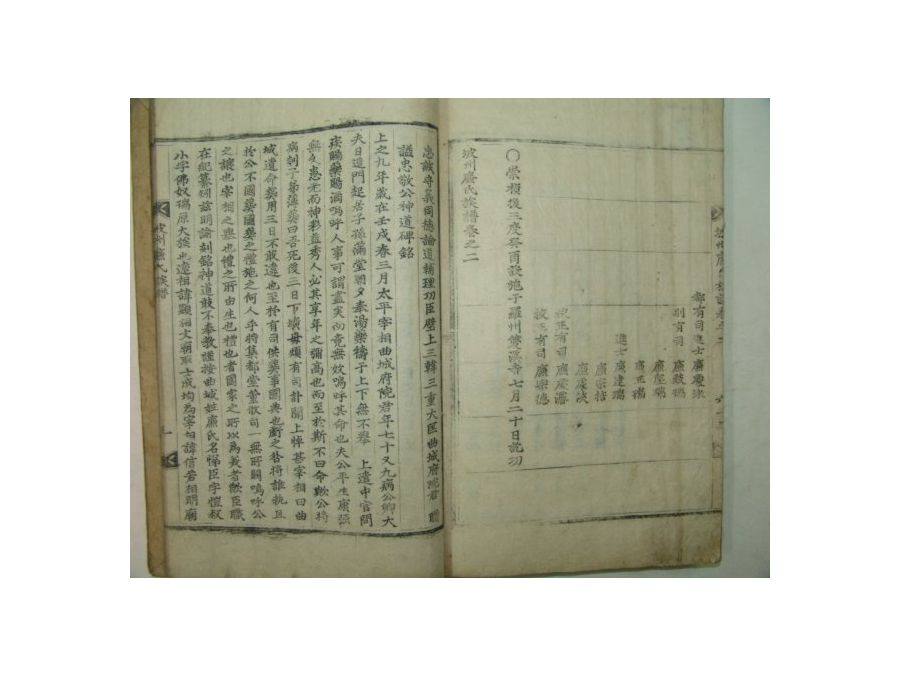 都有司進士廉慶
別有司 廉 瑞
廉 瑞
廉正瑞
進士 廉達瑞
廉宗
廉慶
校正有司 廉慶
校正有司 廉宗德
○崇禎後三度癸酉設施于羅州雙溪寺七月二十日訖功
坡州廉氏族譜卷之二
忠誠守義同德論道輔理功臣壁上三韓三重大匡曲城府院君 贈
謚忠敬公神道碑銘
上之九年歲在壬戌春三月太平宰相曲城府院君年七十又九病公卿大
夫日造門起居子孫滿堂朝夕奉湯藥禱于上下無不擧 上遣中官問
疾賜藥賜酒嗚呼人事可謂盡矣而竟無效嗚呼其命也夫公平生康强
無 患老而神彩益秀人必其享年之彌高也而至於斯不曰命歟公將
病 子 薄葬曰吾死後三日下壙毋煩有司訃聞上悼甚宰相曰曲
城遺命葬用三日不敢違也至於有司供葬事典也 之 將誰執且
於公不國葬國葬之禮施之何人乎將集都堂 百司一無所闕嗚呼公
之讓也宰相之 也禮之所由生也禮也者國家之所以爲 者 臣職
在紀 玆明諭刻銘神道敢不奉敎謹按曲城姓廉氏名悌臣字愷叔
小字佛奴瑞原大族也遠祖諱顯相文廟取士成均爲宰相諱信若相明廟
坡州廉氏族譜